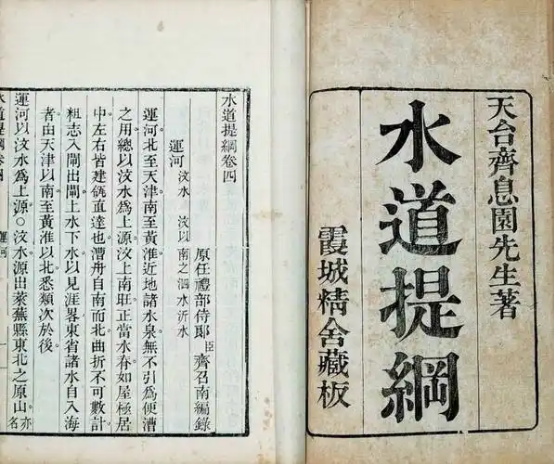 天台齊息園先生著
水道提綱
霞城精舍藏板
水道提綱卷四
原任禮部侍郎臣齊召南編錄
運河 汶水 汶以南之泗水沂水
運河北至天津南至黃淮近地諸水泉無不引爲便漕
之用總以汶水爲上源汶上南旺正當水脊如屋極居
中左右皆建瓴直達也漕舟自南而北曲折不可數計
粗志入閘出閘上水下水以見涯畧東省諸水自入海
者由天津以南至黃淮以北悉類次於後
運河以汶水爲上源○汶水源出萊蕪縣東北之原山亦名
水道提綱卷四 運河